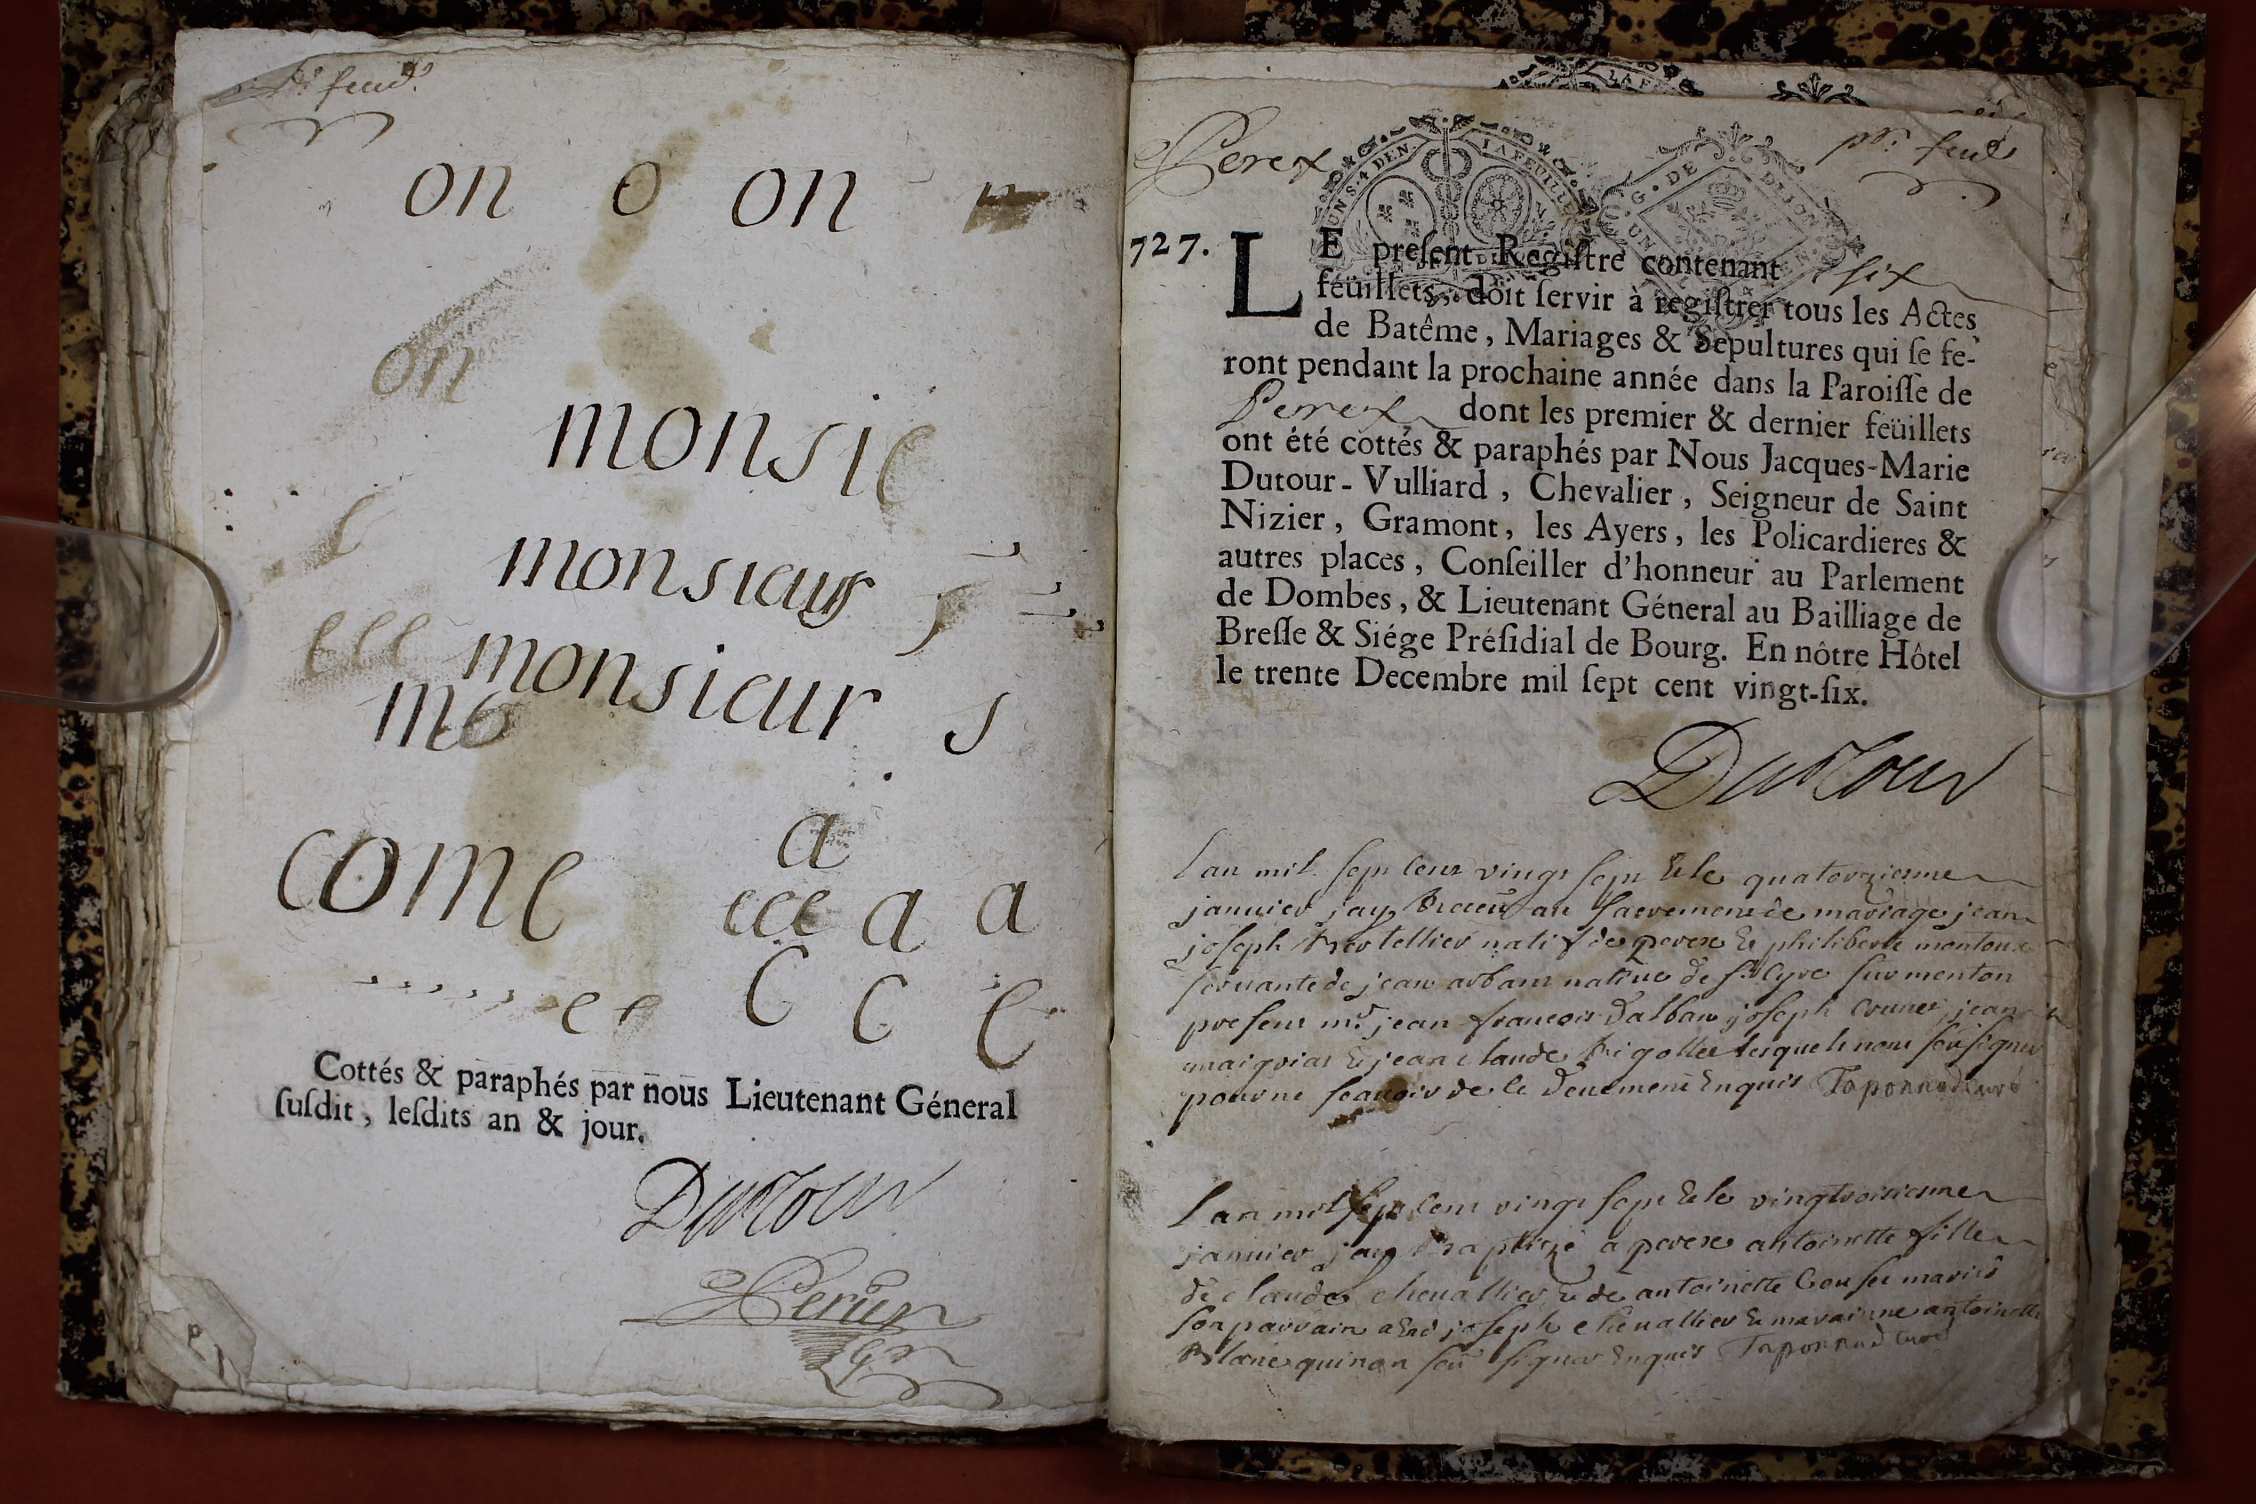 feud.
on o on n
on
monsie
e
monsieur s
eee monsieur s
mo
come a
eee a a
e e C C C
Cottés & paraphés par nous Lieutenant Géneral
ſuſdit, leſdits an & jour.
Dutour
Perex
pr. feud
UN S. 4 DEN. LA FEUILLE
G. DE DIJON
727.
LE preſent Regiſtre contenant ſix
feüillets, doit ſervir à regiſtrer tous les Actes
de Batême, Mariages & Sepultures qui ſe fe-
ront pendant la prochaine année dans la Paroiſſe de
Perex dont les premier & dernier feüillets
ont été cottés & paraphés par Nous Jacques-Marie
Dutour-Vulliard, Chevalier, Seigneur de Saint
Nizier, Gramont, les Ayers, les Policardieres &
autres places, Conſeiller d'honneur au Parlement
de Dombes, & Lieutenant Géneral au Bailliage de
Breſſe & Siége Préſidial de Bourg. En nôtre Hôtel
le trente Decembre mil ſept cent vingt-ſix.
Dutour
Lan mil sept cent vingt sept & le quatorzieme
janvier jay receu au sacrement de mariage jean
joseph natif de perex & philiberte
servante de jean natiue de st Cyre sur menton
present mr jean francois Dalban joseph jean
& jean claude lesquels nont seu signer
pour ne scauoir de ce Deuement Enquis Taponnad curé
Lan mil sept cent vingt sept & le vingtroisieme
janvier jay Baptizé a perex antoinette fille
de claude cheuallier & de antoinette mariés
son parrain a Eté joseph cheuallier & marainne antoinette
Blanc qui non seu signer Enquis Taponnad curé